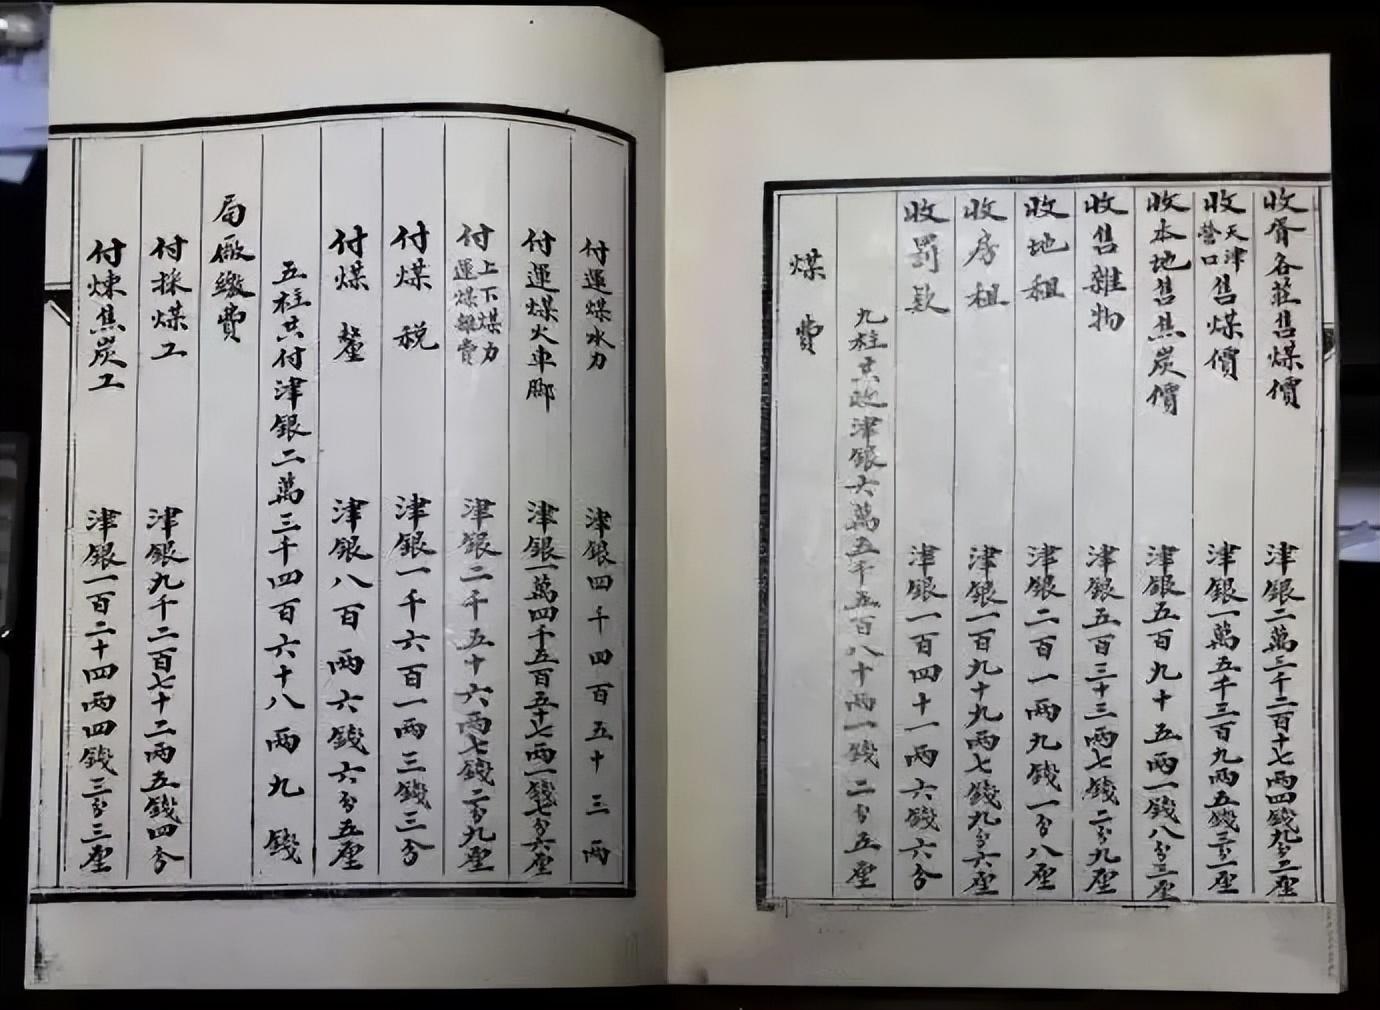 收胥各莊售煤價 津銀二萬三千二百十七兩四錢九分二厘
收天津營口售煤價 津銀一萬五千三百九兩五錢三分一厘
收本地售焦炭價 津銀五百九十五兩一錢八分三厘
收售雜物 津銀五百三十三兩七錢二分九厘
收地租 津銀二百一兩九錢一分八厘
收房租 津銀一百九十九兩七錢九分六厘
收罰款 津銀一百四十一兩六錢六分
九柱共收津銀六萬五千五百八十兩一錢二分五厘
煤費
付運煤水力 津銀四千四百五十三兩
付運煤火車腳 津銀一萬四千五百五十七兩一錢七分六厘
付上下煤力運煤雜費 津銀二千五十六兩七錢二分九厘
付煤稅 津銀一千六百一兩三錢三分
付煤釐 津銀八百兩六錢六分五厘
五柱共付津銀二萬三千四百六十八兩九錢
局繳費
付採煤工 津銀九千二百七十二兩五錢四分
付煉焦炭工 津銀一百二十四兩四錢三分三厘